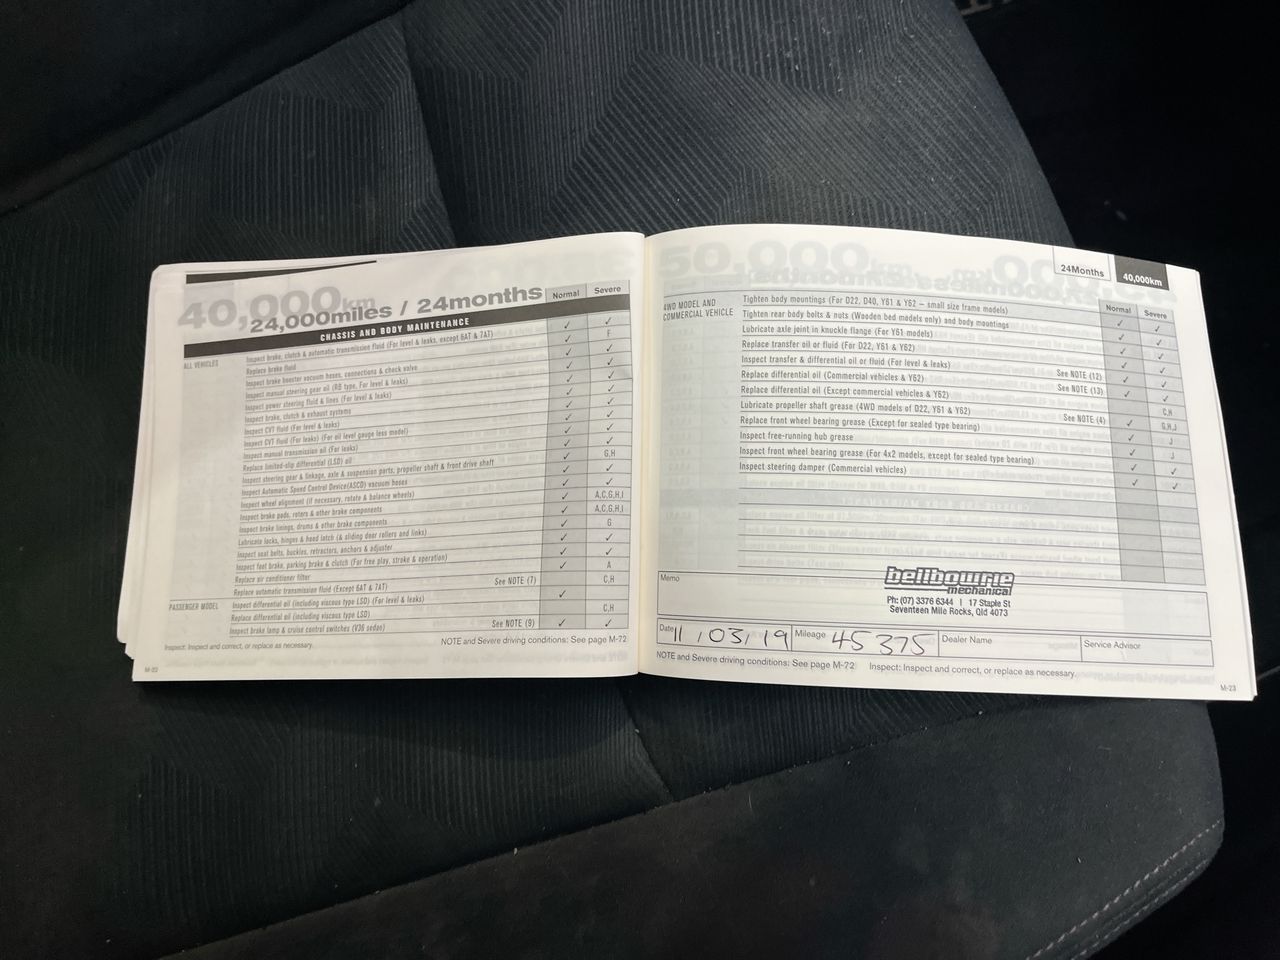 40,000km
24,000miles / 24months
Normal Severe
CHASSIS AND BODY MAINTENANCE
ALL VEHICLES
Inspect brake, clutch & automatic transmission fluid (For level & leaks, except 6AT & 7AT) ✓ ✓
Replace brake fluid ✓ F
Inspect brake booster vacuum hoses, connections & check valve ✓ ✓
Inspect manual steering gear oil (RB type, For level & leaks) ✓ ✓
Inspect power steering fluid & lines (For level & leaks) ✓ ✓
Inspect brake, clutch & exhaust systems ✓ ✓
Inspect CVT fluid (For level & leaks) ✓ ✓
Inspect CVT fluid (For leaks) (For oil level gauge less model) ✓ ✓
Inspect manual transmission oil (For leaks) ✓ ✓
Replace limited-slip differential (LSD) oil G,H
Inspect steering gear & linkage, axle & suspension parts, propeller shaft & front drive shaft ✓ ✓
Inspect Automatic Speed Control Device(ASCD) vacuum hoses ✓ ✓
Inspect wheel alignment (if necessary, rotate & balance wheels) ✓ A,C,G,H,I
Inspect brake pads, rotors & other brake components ✓ A,C,G,H,I
Inspect brake linings, drums & other brake components ✓ G
Lubricate locks, hinges & hood latch (& sliding door rollers and links) ✓ ✓
Inspect seat belts, buckles, retractors, anchors & adjuster ✓ ✓
Inspect foot brake, parking brake & clutch (For free play, stroke & operation) ✓ A
Replace air conditioner filter
Replace automatic transmission fluid (Except 6AT & 7AT) See NOTE (7) C,H
PASSENGER MODEL
Inspect differential oil (including viscous type LSD) (For level & leaks) ✓
Replace differential oil (including viscous type LSD) C,H
Inspect brake lamp & cruise control switches (V36 sedan) See NOTE (9) ✓ ✓
Inspect: Inspect and correct, or replace as necessary.
NOTE and Severe driving conditions: See page M-72
M-22
24Months 40,000km
Normal Severe
4WD MODEL AND
COMMERCIAL VEHICLE
Tighten body mountings (For D22, D40, Y61 & Y62 – small size frame models) ✓ ✓
Tighten rear body bolts & nuts (Wooden bed models only) and body mountings ✓ ✓
Lubricate axle joint in knuckle flange (For Y61 models) ✓ ✓
Replace transfer oil or fluid (For D22, Y61 & Y62) ✓ ✓
Inspect transfer & differential oil or fluid (For level & leaks) See NOTE (12) ✓ ✓
Replace differential oil (Commercial vehicles & Y62) See NOTE (13) ✓ ✓
Replace differential oil (Except commercial vehicles & Y62) C,H
Lubricate propeller shaft grease (4WD models of D22, Y61 & Y62) See NOTE (4) ✓ G,H,J
Replace front wheel bearing grease (Except for sealed type bearing) J
Inspect free-running hub grease J
Inspect front wheel bearing grease (For 4x2 models, except for sealed type bearing) ✓ ✓
Inspect steering damper (Commercial vehicles) ✓ ✓
Memo
bellbowrie
mechanical
Ph: (07) 3376 6344 | 17 Staple St
Seventeen Mile Rocks, Qld 4073
Date 11 / 03 / 19 Mileage 45 375 Dealer Name Service Advisor
NOTE and Severe driving conditions: See page M-72 Inspect: Inspect and correct, or replace as necessary.
M-23